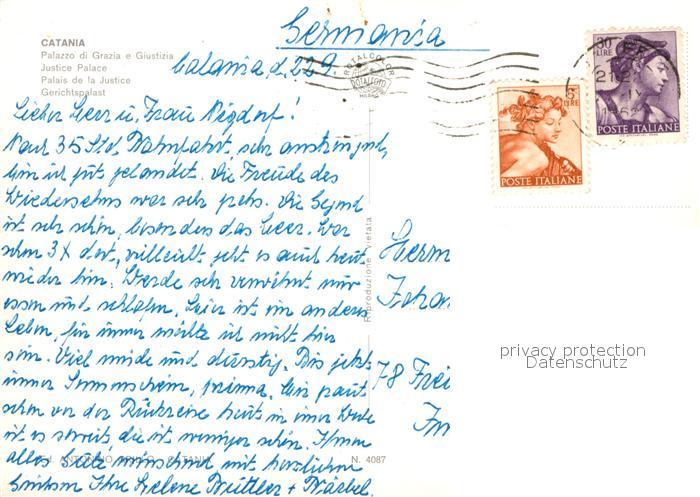 Germania
CATANIA
Palazzo di Grazia e Giustizia
Justice Palace
Palais de la Justice
Gerichtspalast
Catania d. 22.9.
ROTALCOLOR
ROTALFOTO
MILANO
30 LIRE
POSTE ITALIANE
5 LIRE
POSTE ITALIANE
Lieber Herr u. Frau
Nach 35 Std. Bahnfahrt, sehr anstrengend,
bin ich gut gelandet. Die Freude des
Wiedersehns war sehr gross. Die Gegend
ist sehr schön, besonders das Meer. War
schon 3x dort, vielleicht geht es auch heut
wieder hin. Werde sehr verwöhnt nur
essen und schlafen. Hier ist ein anderes
Leben, für immer möchte ich nicht hier
sein. Viel müde und durstig. Bis jetzt
immer Sonnenschein, prima. Mir graut
schon vor der Rückreise heut in einer Woche
ist es soweit, die ist weniger schön. Ihnen
alles Gute wünschend mit herzlichen
Grüssen Ihre Helene + Bärbel.
Riproduzione vietata
Herrn
Johan
78 Frei
Im
privacy protection
Datenschutz
CATANIA
N. 4087